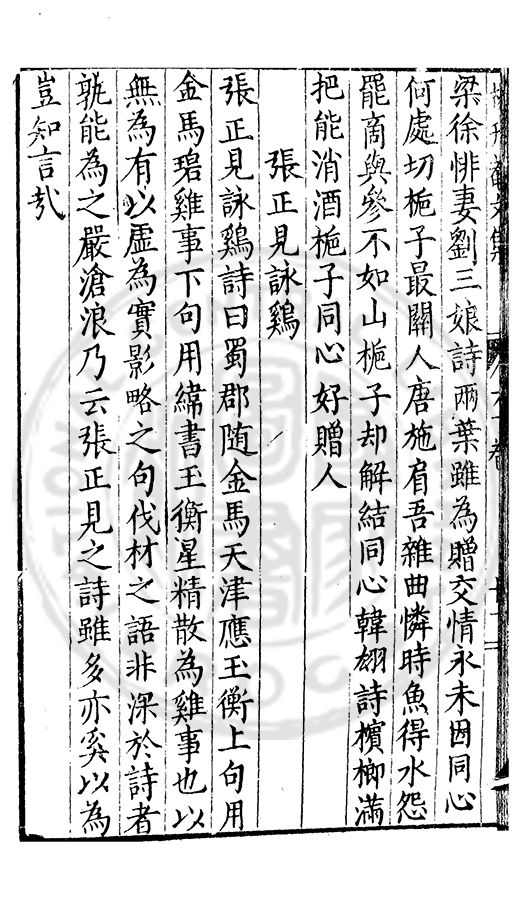 梁徐悱妻劉三娘詩兩葉雖為贈交情永未因同心
何處切梔子最關人唐施肩吾雜曲憐時魚得水怨
罷商與參不如山梔子却解結同心韓翃詩檳榔滿
把能消酒梔子同心好贈人
張正見詠鷄
張正見詠鷄詩曰蜀郡随金馬天津應玉衡上句用
金馬碧雞事下句用緯書玉衡星精散為雞事也以
無為有以虛為實影略之句伐材之語非深於詩者
孰能為之嚴滄浪乃云張正見之詩雖多亦奚以為
豈知言哉